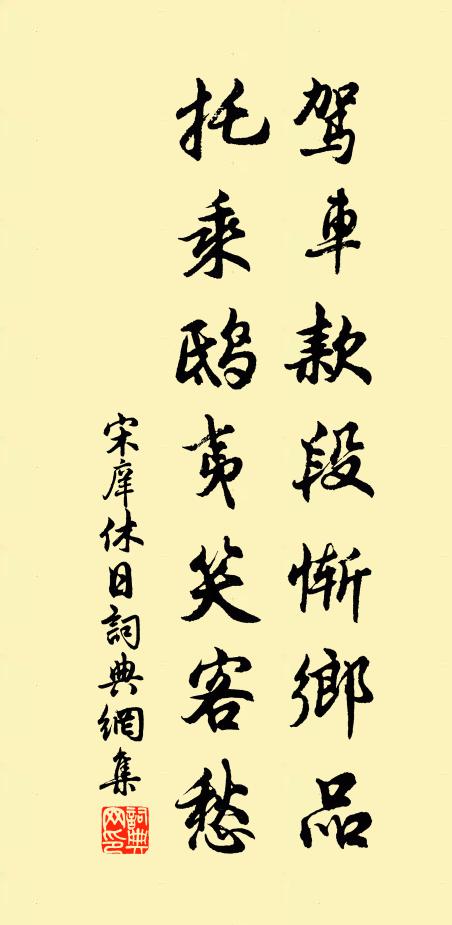 駕車款段慚鄉品
托乘鴟夷笑客愁
宋庠休日詞典網集
詞典网印